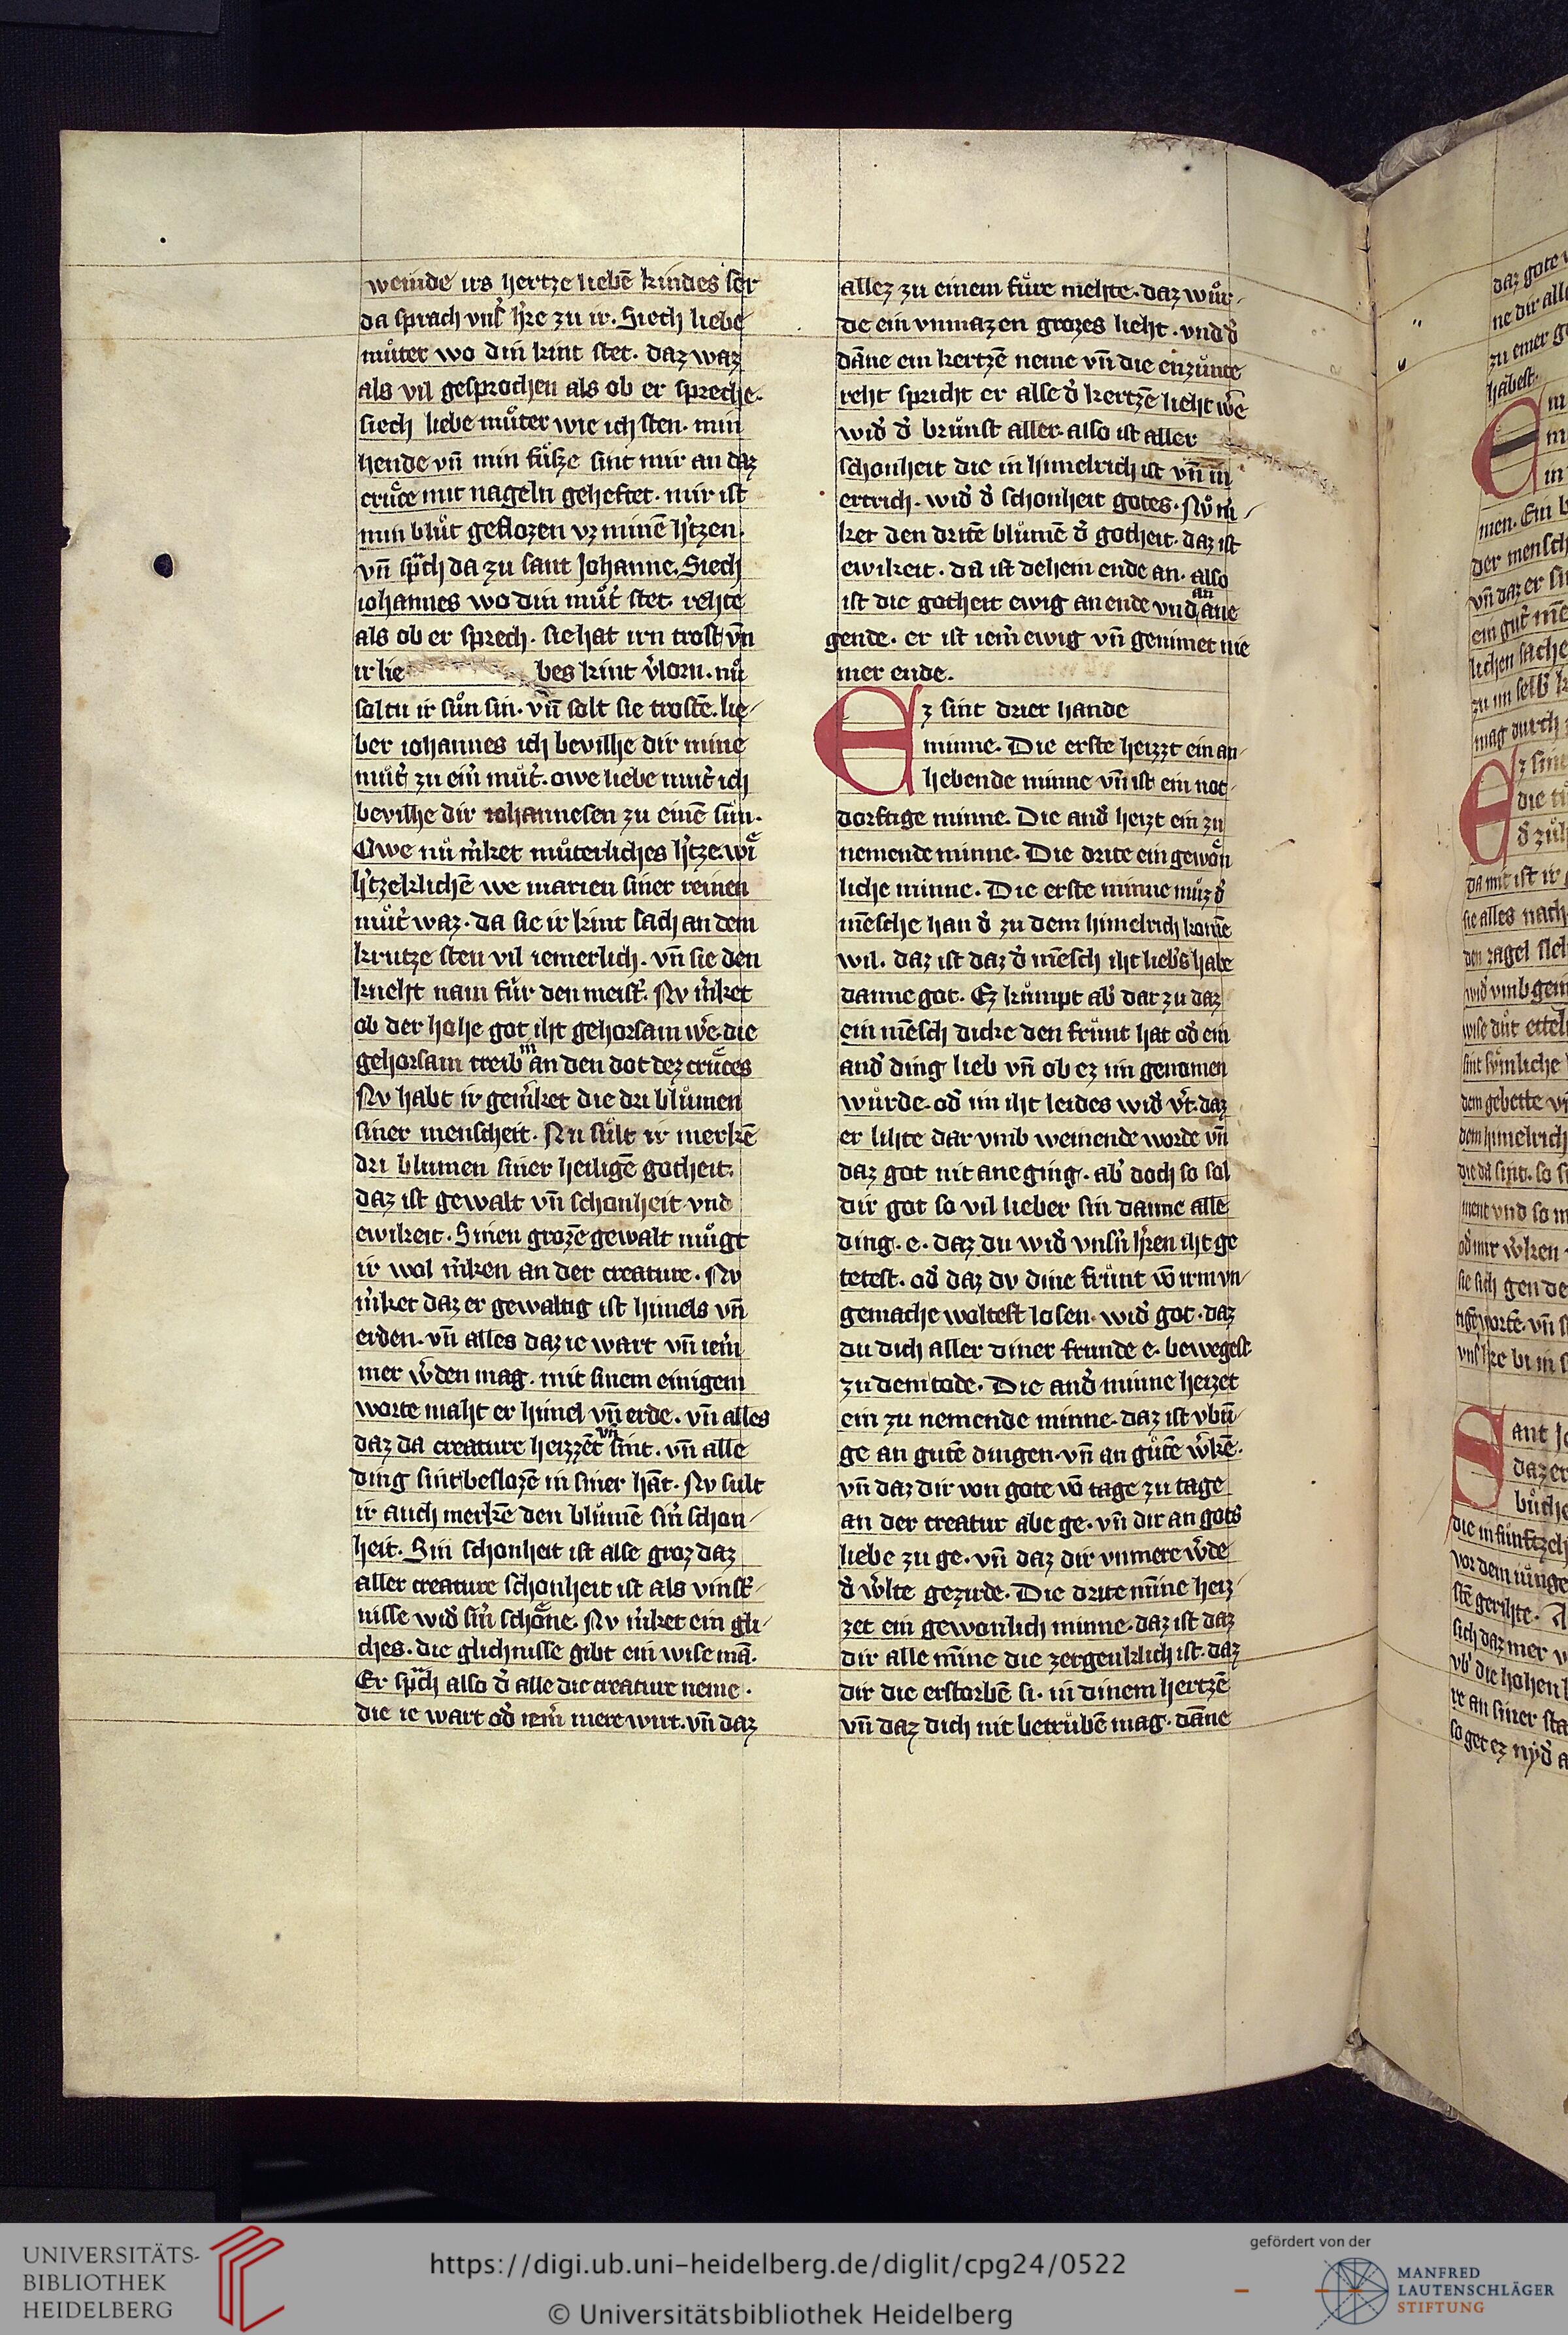 weinde irs hertze liebē kindes ser
da sprach vnſ̉ h̉re zu ir. Siech liebe
muͦter wo din kint stet. daz waz
als vil gesprochen als ob er spreche.
siech liebe muͦter wie ich sten. min
hende vn̄ min fuͤsze sint mir an daz
cruͤce mit nageln geheftet. mir ist
min bluͦt geflozen vz minē h̉tzen.
vn̄ sp̃ch da zu sant Johanne. Siech
iohannes wo din muͦt̉ stet. rehte
als ob er sprech. sie hat irn trost vn̄
ir lie bes kint v̉lorn. nuͦ
saltu ir suͦn sin. vn̄ salt sie trostē. lie-
ber iohannes ich bevilhe dir mine
muͦt̉ zu eim̉ muͦt̉. owe liebe muͦt̉ ich
bevilhe dir iohannesen zu einē sun.
Owe nuͦ m̉ket muͦterliches h̉tze. wi
h̉tzeklichē we marien siner reinen
muͦt̉ waz. da sie ir kint sach an dem
krutze sten vil iemerlich. vn̄ sie den
kneht nam fuͤr den meist̉. Nv m̉ket
ob der hohe got iht gehorsam we̓. die
gehorsam treib in an den dot dez cruͤces
Nv habt ir gem̉ket die dri bluͦmen
siner menscheit. Nu suͤlt ir merkē
dri blumen siner heiligē gotheit.
daz ist gewalt vn̄ schonheit vnd
ewikeit. Sinen grozē gewalt muͦgt
ir wol m̉ken an der creature. Nv
m̉ket daz er gewaltig ist himels vn̄
erden. vn̄ alles daz ie wart vn̄ iem̉
mer w̉den mag. mit sinem einigem
worte maht er himel vn̄ erde. vn̄ alles
daz da creature heizzēt vn̄ sint. vn̄ alle
ding sint beslozē in siner hāt. Nv sult
ir auch merkē den bluͦmē sin̉ schon-
heit. Sin schonheit ist alse groz daz
aller creature schonheit ist als vinst̉-
nisse wid̉ sin̉ schoͤne. Nv m̉ket ein gli-
ches. die glichnisse gibt ein wise mā.
Er sp̃ch also d̉ alle die creature neme.
die ie wart od̉ iem̉ mere wirt. vn̄ daz
allez zu einem fuͤre mehte. daz wuͤr-
de ein vnmazen grozes lieht. vnd d̉
dāne ein kertzē neme vn̄ die enzuͦnte
reht spricht er alse d̉ kertzē lieht we̓
wid̉ d̉ bruͦnst aller. also ist aller
schonheit die in himelrich ist vn̄ in
ertrich. wid̉ d̉ schonheit gotes. Nuͦ m̉-
ket den dritē bluͦmē d̉ gotheit. daz ist
ewikeit. da ist dehein ende an. also
ist die gotheit ewig an ende vnd an ane
gende. er ist iem̉ ewig vn̄ genimet nie
mer ende.
Ez sint drier hande
minne. Die erste heizzt ein an-
hebende minne vn̄ ist ein not-
dorftige minne. Die and̉ heizt ein zu
nemende minne. Die drite ein gewon
liche minne. Die erste minne muͦz d̉
mēsche han d̉ zu dem himelrich komē
wil. daz ist daz d̉ mēsch iht lieb̉s habe
danne got. Ez kuͦmpt ab̉ dar zu daz
ein mēsch dicke den fruͤnt hat od̉ ein
and̉ ding lieb vn̄ ob ez im genomen
wuͦrde. od̉ im iht leides wid̉ v̉t. daz
er lihte dar vmb weinende worde vn̄
daz got nit ane ging. ab̉ doch so sol
dir got so vil lieber sin danne alle
ding. e. daz du wid̉ vnsn̉ h̉ren iht ge
tetest. od̉ daz dv dine fruͤnt vō irm vn-
gemache woltest losen. wid̉ got. daz
du dich aller diner frunde e. bewegest
zu dem tode. Die and̉ minne heizet
ein zu nemende minne. daz ist vbū-
ge an gutē dingen. vn̄ an guͤtē w̉kē.
vn̄ daz dir von gote vō tage zu tage
an der creatur abe ge. vn̄ dir an gots̉
liebe zu ge. vn̄ daz dir vnmere w̉de
d̉ w̉lte gezirde. Die drite mīne heiz-
zet ein gewonlich minne. daz ist daz
dir alle mīne die zergenklich ist. daz
dir die erstorbē si. in dinem hertzē
vn̄ daz dich nit betruͤbē mag. dāne
daz gote
ne dir alle
zu einer
habest.
men. Ein
der mensch
vn̄ daz er
ein gut̉
lichen sache
zu im selb̉
mag durch
Ez sint
die
da mit ist ir
sie alles nach
den zagel
wid̉ vmb
sint
dem gebette
dem himelrich
die da sint. so
ment vnd so
sie sich gen de
Sant
daz er
buͦche
die in fuͤnftzeh
vor dem
stē gerihte.
sich daz mer
vb̉ die hohen
re an siner
so get ez
UNIVERSITÄTS-
BIBLIOTHEK
HEIDELBERG
https://digi.ub.uni-heidelberg.de/diglit/cpg24/0522
© Universitätsbibliothek Heidelberg
gefördert von der
MANFRED
LAUTENSCHLÄGER
STIFTUNG